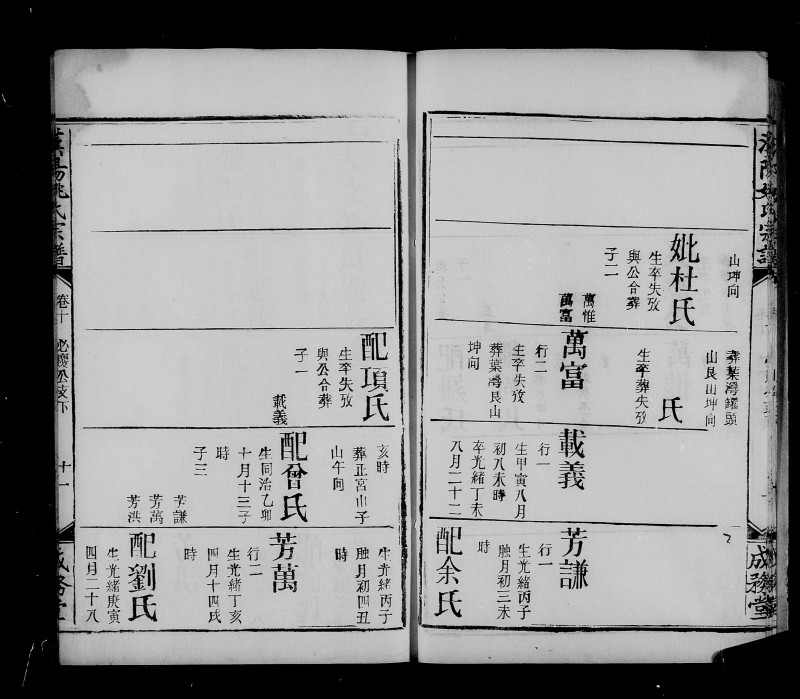 山坤向
妣杜氏
生卒失攷
與公合葬
子二
萬惟
萬富
葬葉灣鑼頭
山艮山坤向
氏
生卒葬失攷
萬富
行二
生卒失攷
葬葉灣艮山
坤向
載義
行一
生甲寅八月
初八未時
卒光緒丁未
八月二十二
芳謙
行一
生光緒丙子
腊月初三未
時
配余氏
配項氏
生卒失攷
與公合葬
子一
載義
亥時
葬正宮山子
山午向
配曾氏
生同治乙卯
十月十三子
時
子三
芳謙
芳萬
芳洪
生光緒丙子
腊月初四丑
時
芳萬
行二
生光緒丁亥
四月十四戌
時
配劉氏
生光緒庚寅
四月二十八
卷十
十一
成務堂